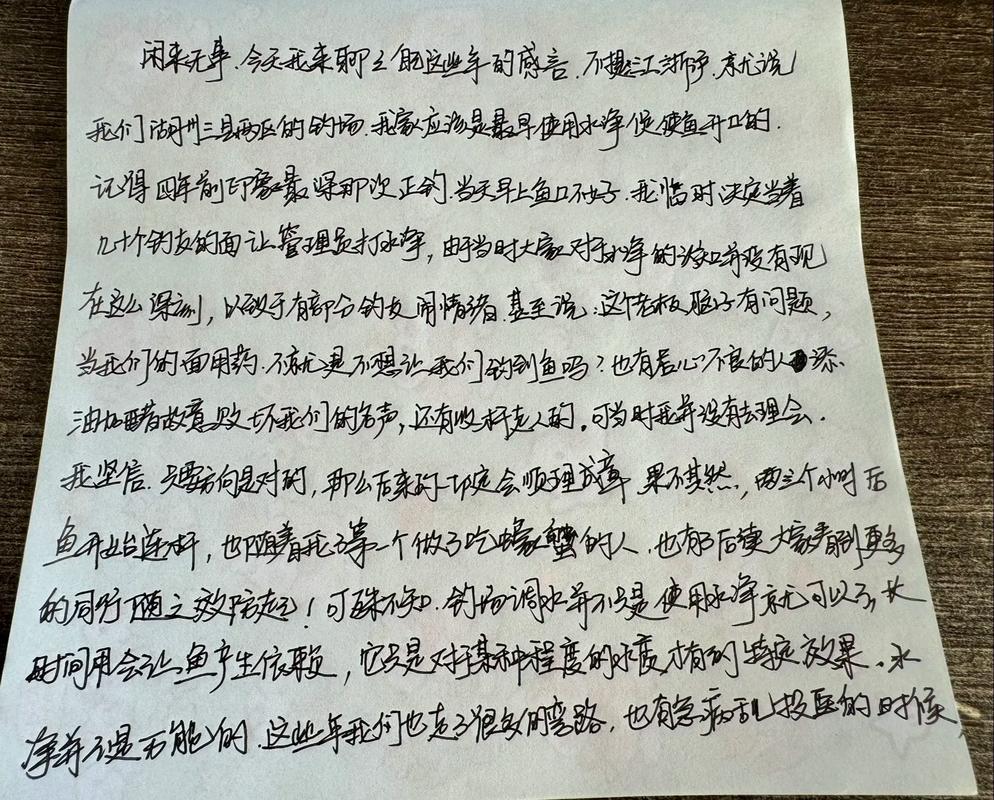 闲来无事.今天我来聊之自己这些年的感言.不提江浙沪.就说
我们湖州三县两区的钓场.我家应该是最早使用水净促使鱼开口的.
记得四年前印象最深那次正钓.当天早上鱼口不好.我临时决定当着
几十个钓友的面让管理员打水净，由于当时大家对于水净的认知并没有现
在这么深刻，以致于有部分钓友闹情绪.甚至说:这个老板脑子有问题，
当我们的面用药.不就是不想让我们钓到鱼吗?也有居心不良的人添.
油加醋故意败坏我们的名声,还有收杆走人的.可当时我并没有去理会.
我坚信.只要方向是对的，那么后来的一切定会顺理成章 果不其然，两三个小时后
鱼开始连杆，也随着我了第一个做了吃螃蟹的人，也有了后续大家看到更多
的同行随之效仿起！可殊不知.钓场调水并不只是使用水净就可以了,长
时间用会让鱼产生依赖，它只是对于某种程度的水质才有的特定效果.水
净并不是万能的.这些年我们也走了很多的弯路.也有急病乱投医的时候,